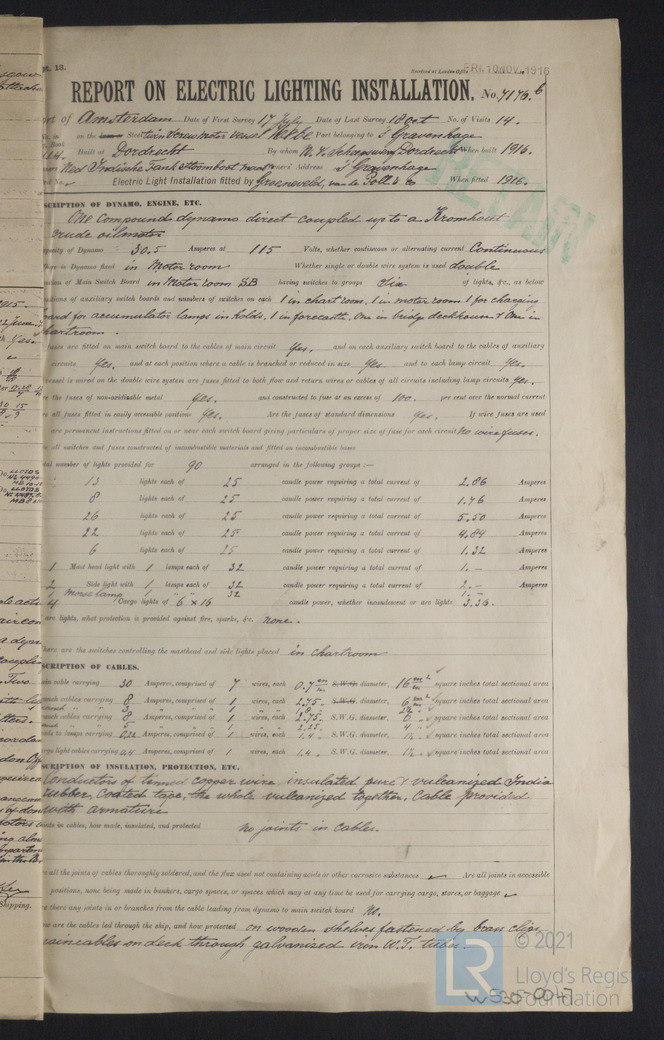 pt. 13.
Received at London Office FRI. 10 NOV. 1916
REPORT ON ELECTRIC LIGHTING INSTALLATION. No. 7176.b
of Amsterdam Date of First Survey 17 July Date of Last Survey 18 Oct No. of Visits 14.
on the Steel twin Screw motor vessel Hebe Port belonging to s'Gravenhage
Built at Dordrecht By whom When built 1916.
Owners' Address s'Gravenhage
Electric Light Installation fitted by Groeneveld, van de Poll & Co When fitted 1916.
SCRIPTION OF DYNAMO, ENGINE, ETC.
One compound dynamo direct coupled up to a Kromhout
crude oilmotor
pacity of Dynamo 30.5 Amperes at 115 Volts, whether continuous or alternating current Continuous
is Dynamo fixed in Motor room Whether single or double wire system is used double
of Main Switch Board in Motor room SB having switches to groups Six of lights, &c., as below
sitions of auxiliary switch boards and numbers of switches on each 1 in chart room, 1 in motor room 1 for charging
board for accumulator lamps in holds, 1 in forecastle, one in bridge deckhouse & one in
chartroom.
fuses are fitted on main switch board to the cables of main circuit Yes. and on each auxiliary switch board to the cables of auxiliary
circuits Yes. and at each position where a cable is branched or reduced in size Yes and to each lamp circuit Yes.
vessel is wired on the double wire system are fuses fitted to both flow and return wires or cables of all circuits including lamp circuits Yes.
the fuses of non-oxidizable metal Yes. and constructed to fuse at an excess of 100. per cent over the normal current
all fuses fitted in easily accessible positions Yes. Are the fuses of standard dimensions Yes. If wire fuses are used
are permanent instructions fitted on or near each switch board giving particulars of proper size of fuse for each circuit No wire fuses.
all switches and fuses constructed of incombustible materials and fitted on incombustible bases
tal number of lights provided for 90 arranged in the following groups :—
13 lights each of 25 candle power requiring a total current of 2.86 Amperes
8 lights each of 25 candle power requiring a total current of 1.76 Amperes
26 lights each of 25 candle power requiring a total current of 5.50 Amperes
22 lights each of 25 candle power requiring a total current of 4.84 Amperes
6 lights each of 25 candle power requiring a total current of 1.32 Amperes
1 Mast head light with 1 lamps each of 32 candle power requiring a total current of 1.— Amperes
2 Side light with 1 lamps each of 32 candle power requiring a total current of 2.— Amperes
1 Morse lamp 32 1.—
4 Cargo lights of 6 x 16 candle power, whether incandescent or arc lights 3.36.
arc lights, what protection is provided against fire, sparks, &c. none.
here are the switches controlling the masthead and side lights placed in chartroom
SCRIPTION OF CABLES.
cable carrying 30 Amperes, comprised of 7 wires, each 0.7 mm S.W.G. diameter, 16 mm² square inches total sectional area
cables carrying 8 Amperes, comprised of 1 wires, each 2.75 S.W.G. diameter, 6 mm² square inches total sectional area
cables carrying 8 Amperes, comprised of 1 wires, each 2.75. S.W.G. diameter, 6 square inches total sectional area
to lamps carrying 0.22 Amperes, comprised of 1 wires, each 1.4 S.W.G. diameter, 1½ square inches total sectional area
light cables carrying Amperes, comprised of 1 wires, each 1.4 S.W.G. diameter, 1½ square inches total sectional area
SCRIPTION OF INSULATION, PROTECTION, ETC.
Conductors of tinned copper wire insulated pure & vulcanized India
rubber, coated tape, the whole vulcanized together, Cable provided
with armature
in cables, how made, insulated, and protected no joints in cables.
all the joints of cables thoroughly soldered, and the flux used not containing acids or other corrosive substances Are all joints in accessible
positions, none being made in bunkers, cargo spaces, or spaces which may at any time be used for carrying cargo, stores, or baggage
there any joints in or branches from the cable leading from dynamo to main switch board No.
are the cables led through the ship, and how protected on wooden shelves fastened by brass clips
main cables on deck through galvanized iron W.T. tubes.
© 2021
Lloyd's Register
Foundation
LR
W530-0047